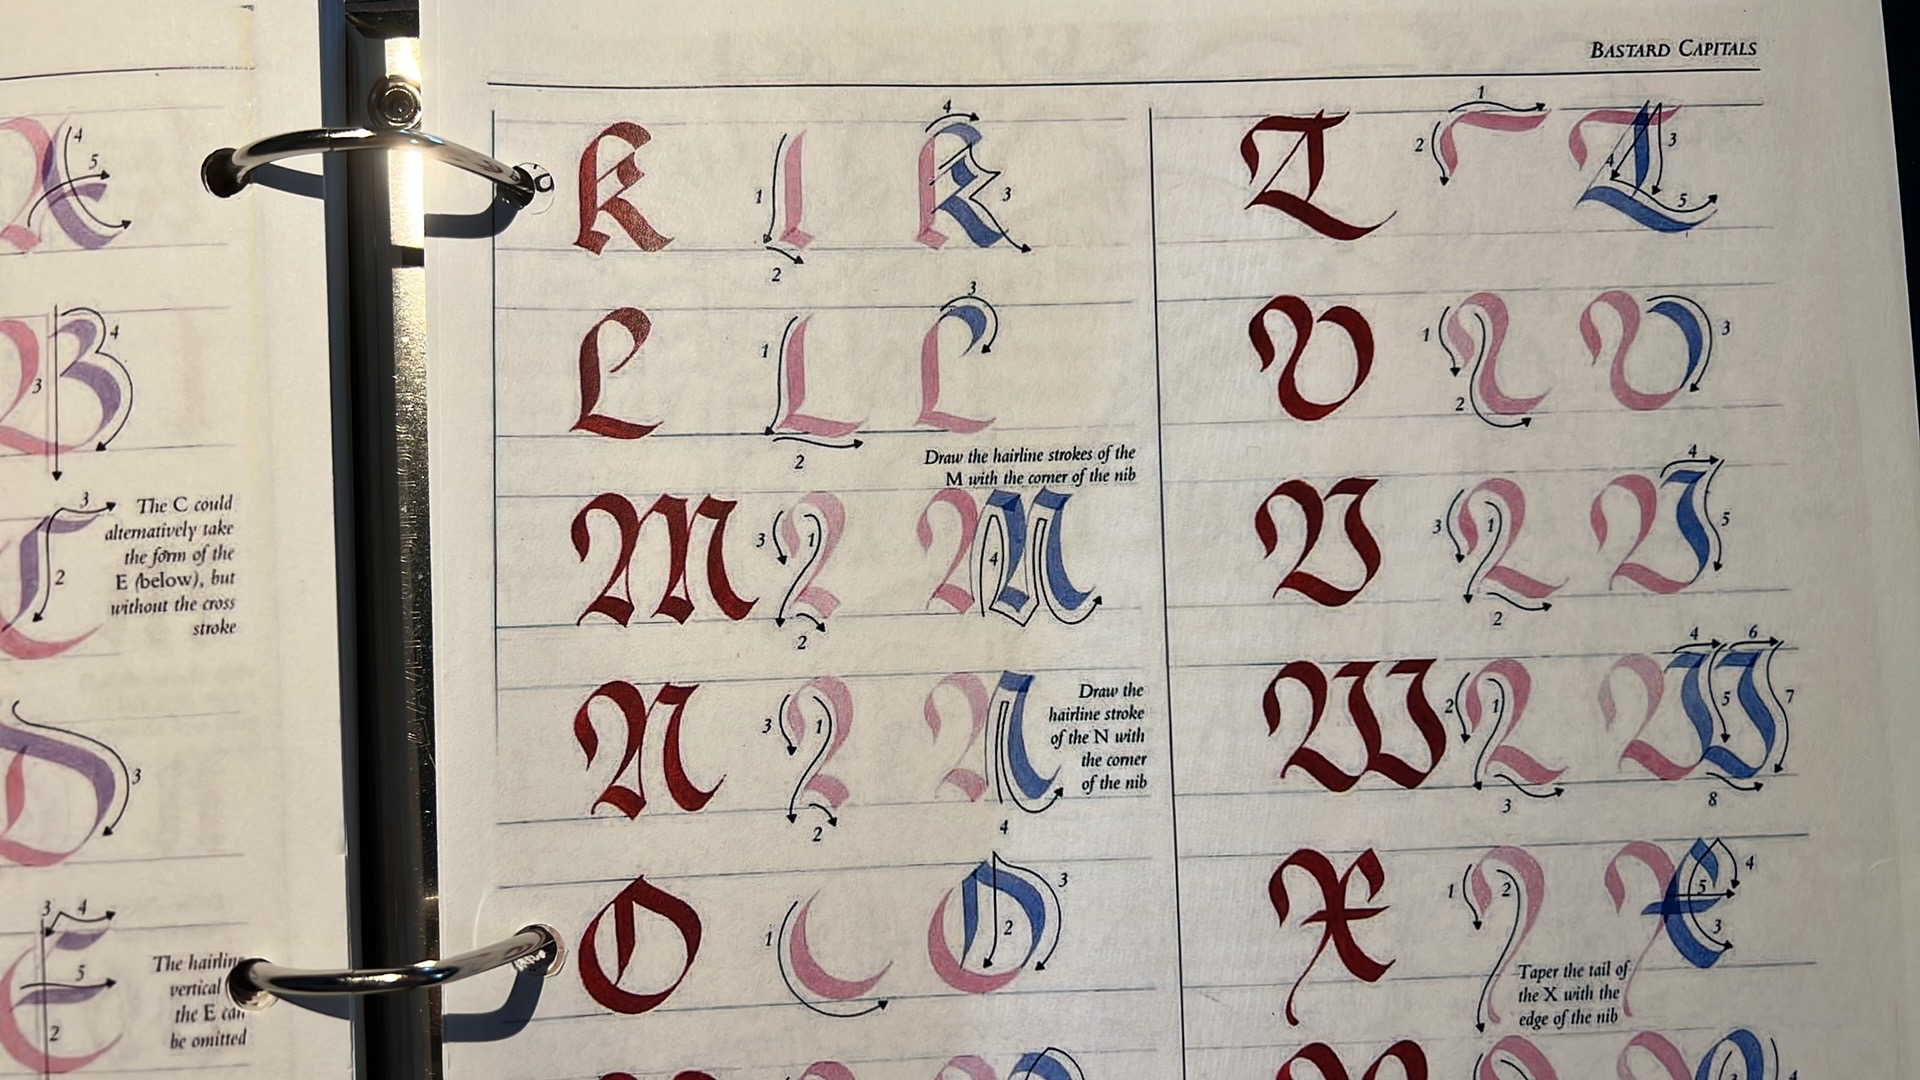 BASTARD CAPITALS
4
5
3
4
3
2
The C could
alternatively take
the form of the
E (below), but
without the cross
stroke
3
3
4
5
2
The hairline
vertical
the E can
be omitted
K
1
2
4
3
L
1
2
3
Draw the hairline strokes of the
M with the corner of the nib
M
3
1
2
4
N
3
1
2
4
Draw the
hairline stroke
of the N with
the corner
of the nib
O
1
2
3
T
1
2
3
4
5
U
1
2
3
V
3
1
2
4
5
W
2
1
3
4
6
5
7
8
X
1
2
4
5
3
Taper the tail of
the X with the
edge of the nib